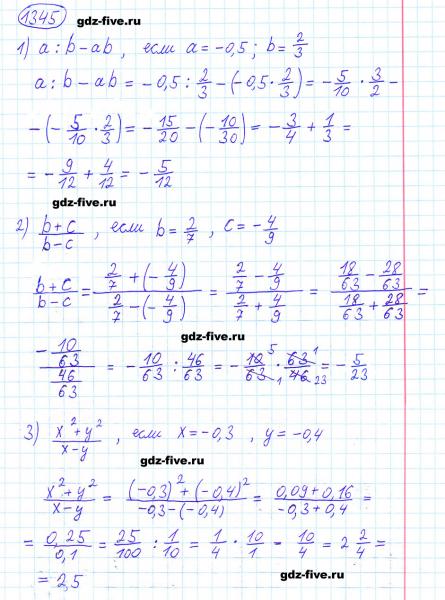 1345 gdz-five.ru
1) a : b - ab , если a = -0,5 ; b = 2/3
a : b - ab = -0,5 : 2/3 - (-0,5 · 2/3) = - 5/10 · 3/2 -
- (- 5/10 · 2/3) = - 15/20 - (- 10/30) = - 3/4 + 1/3 =
= - 9/12 + 4/12 = - 5/12
gdz-five.ru
2) (b+c)/(b-c) , если b = 2/7 , c = - 4/9
(b+c)/(b-c) = (2/7 + (- 4/9))/(2/7 - (- 4/9)) = (2/7 - 4/9)/(2/7 + 4/9) = (18/63 - 28/63)/(18/63 + 28/63) =
gdz-five.ru
(- 10/63)/(46/63) = - 10/63 : 46/63 = - 10 5/63 1 · 63 1/46 23 = - 5/23
3) (x²+y²)/(x-y) , если x = -0,3 , y = -0,4
gdz-five.ru
(x²+y²)/(x-y) = ((-0,3)²+(-0,4)²)/(-0,3-(-0,4)) = (0,09+0,16)/(-0,3+0,4) =
= 0,25/0,1 = 25/100 : 1/10 = 1/4 · 10/1 = 10/4 = 2 2/4 =
= 2,5
gdz-five.ru